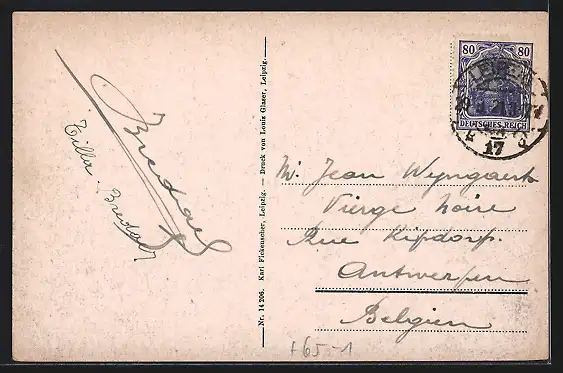 Bredael
Tilla. Bredael
Nr. 14 206. Karl Fickenscher, Leipzig. — Druck von Louis Glaser, Leipzig.
80 80
DEUTSCHES REICH
LEIPZIG
17
Mr. Jean Wyngaert
Vierge noire
Rue Kipdorp.
Antwerpen
Belgien
+65-1